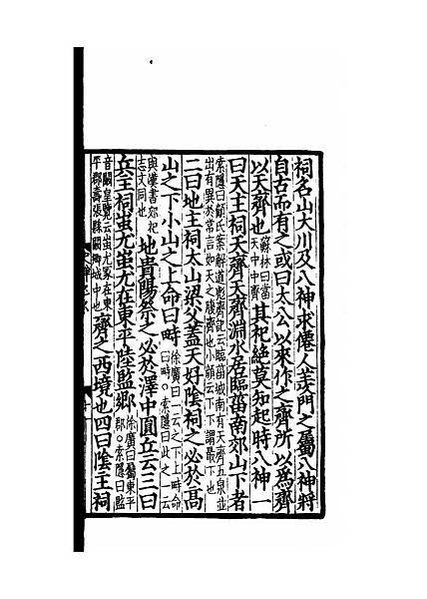 祠名山大川及八神求僊人羨門之屬八神將
自古而有之或曰太公以來作之齊所以為齊
以天齊也蘇林曰當天中央齊其祀絕莫知起時八神一
曰天主祠天齊天齊淵水居臨菑南郊山下者
索隱曰顧氏案解道彪齊記云臨菑城南有天齊五泉並
出有異於常言如天之腹齊也小顏云下下謂最下也
二曰地主祠太山梁父蓋天好陰祠之必於高
山之下小山之上命曰畤徐廣曰一云之下上畤命曰畤○索隱曰此之一云
與漢書郊祀志文同也地貴陽祭之必於澤中圜丘云三曰
兵主祠蚩尤蚩尤在東平陸監鄉徐廣曰屬東平郡○索隱曰監
音闞皇覽云蚩尤冢在東平郡壽張縣闞鄉城中也齊之西境也四曰陰主祠